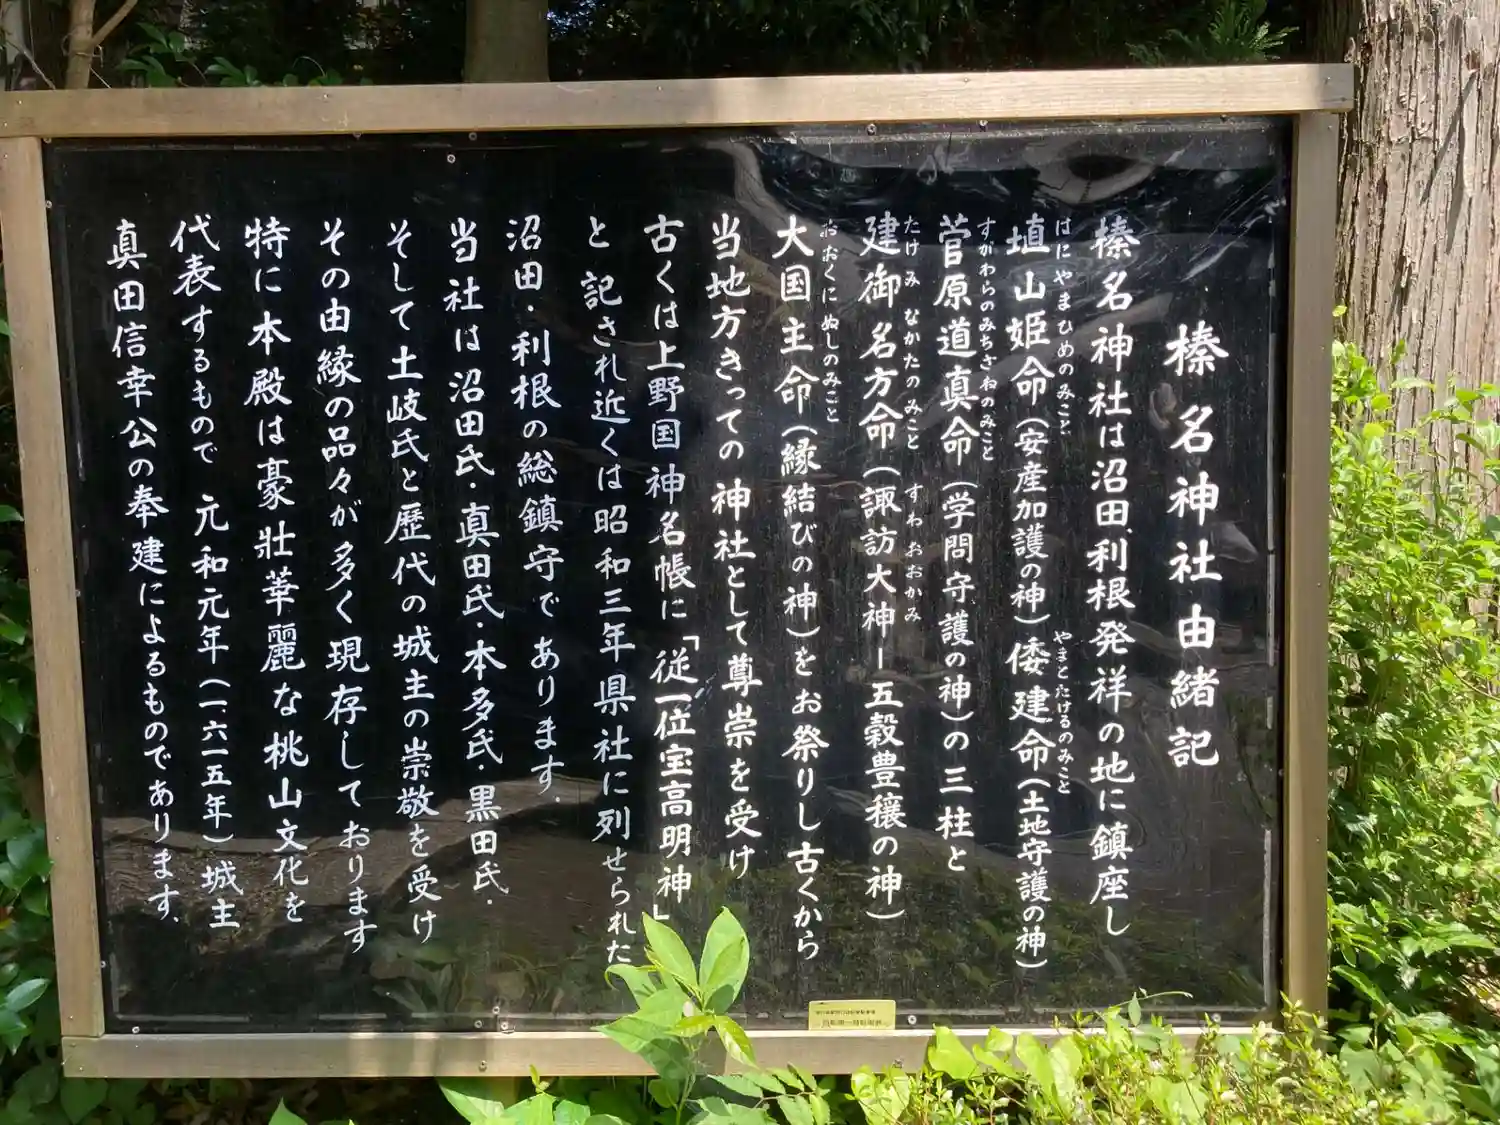 榛名神社由緒記
榛名神社は沼田、利根発祥の地に鎮座し
はにやまひめのみこと やまとたけるのみこと
埴山姫命（安産加護の神）倭建命（土地守護の神）
すがわらのみちざねのみこと
菅原道真命（学問守護の神）の三柱と
たけみなかたのみこと すわおおかみ
建御名方命（諏訪大神ー五穀豊穣の神）
おおくにぬしのみこと
大国主命（縁結びの神）をお祭りし古くから
当地方きっての神社として尊崇を受け
古くは上野国神名帳に「従一位宝高明神」
と記され近くは昭和三年県社に列せられた
沼田・利根の総鎮守であります.
当社は沼田氏・真田氏・本多氏・黒田氏・
そして土岐氏と歴代の城主の崇敬を受け
その由縁の品々が多く現存しております
特に本殿は豪壮華麗な桃山文化を
代表するもので元和元年（一、六一五年）城主
真田信幸公の奉建によるものであります、